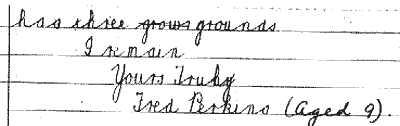 has three grows grounds
I remain
Yours Truly
Fred Perkins (aged 9).